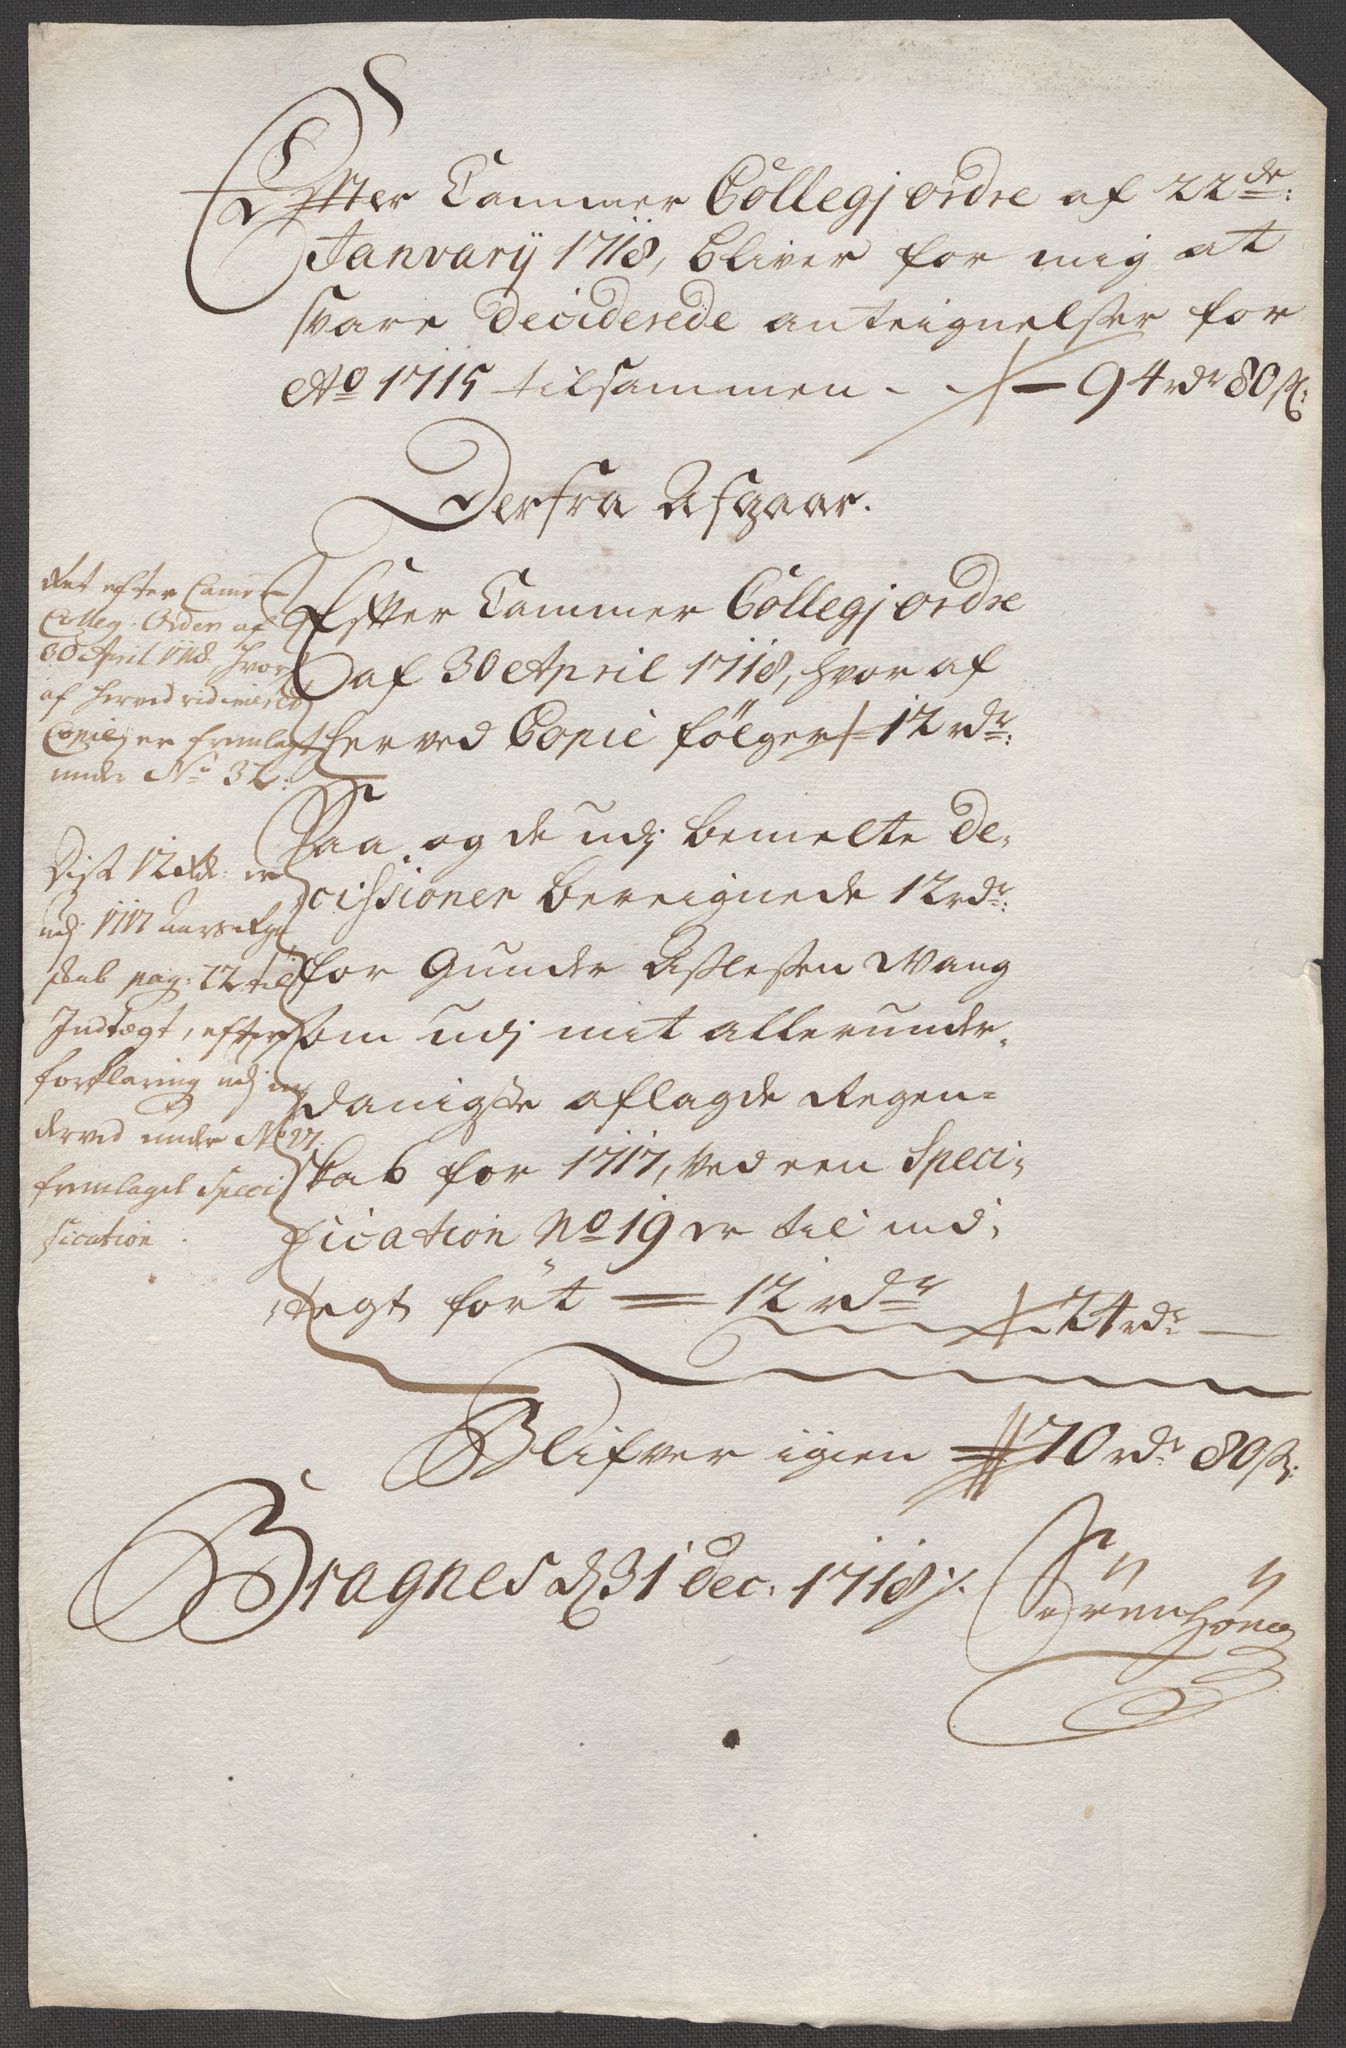 Efter Cammer Collegj ordre af 22de:
Janvarij 1718, bliver for mig at
svare Deciderede anteignelser for
Ao 1715 tilsammen - - 94 rdr 80 s:
Derfra Afgaar.
Efter Cammer Collegj ordre
af 30 April 1718, hvor af
herved Copie følger 12 rdr:
Saa og de udj bemelte De,
cissioner bereignede 12 rdr:
for Gunder Aslessen Wang
som udj mit allerunder,
danigste aflagde Regen=
skab for 1717, ved een Speci,
fication No 19 er til ind,
tegt ført = 12 rdr 24 rdr
Blifver igien 70 rdr 80 s:
Bragnes d 31 Dec. 1718 ./.
Sørren Høeg
Ret efter Camer
Colleg: Orden af
30 April 1718, hvor
af herved vidimered
Copie er fremlagt
under No 32:
Disse 12 rd: er
udj 1717 aars Regn
skab pag: 22 til
Indtægt, efter
forklaring udj en
derved under No 27.
fremlaget Speci
fication